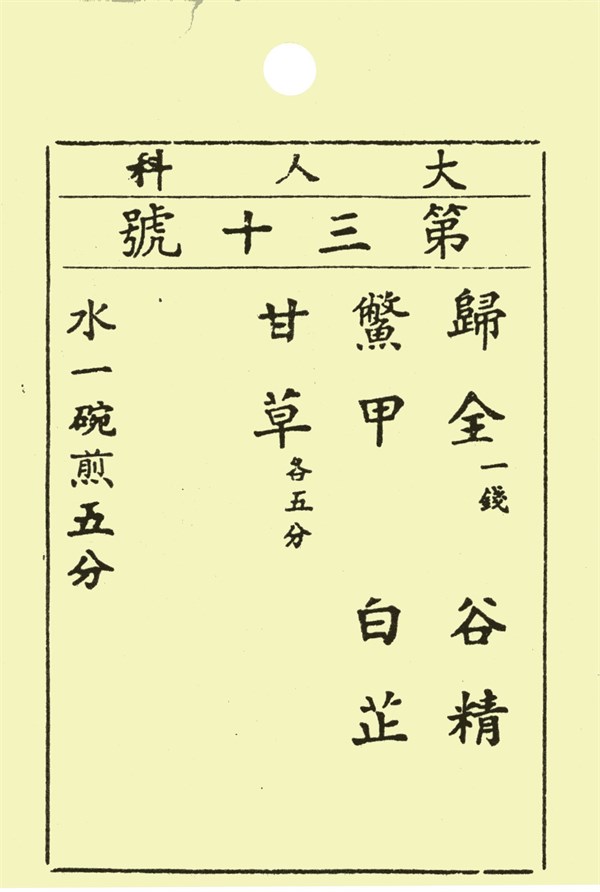 大人科
第三十號
歸全一錢 谷精
鱉甲 白芷
甘草各五分
水一碗煎五分